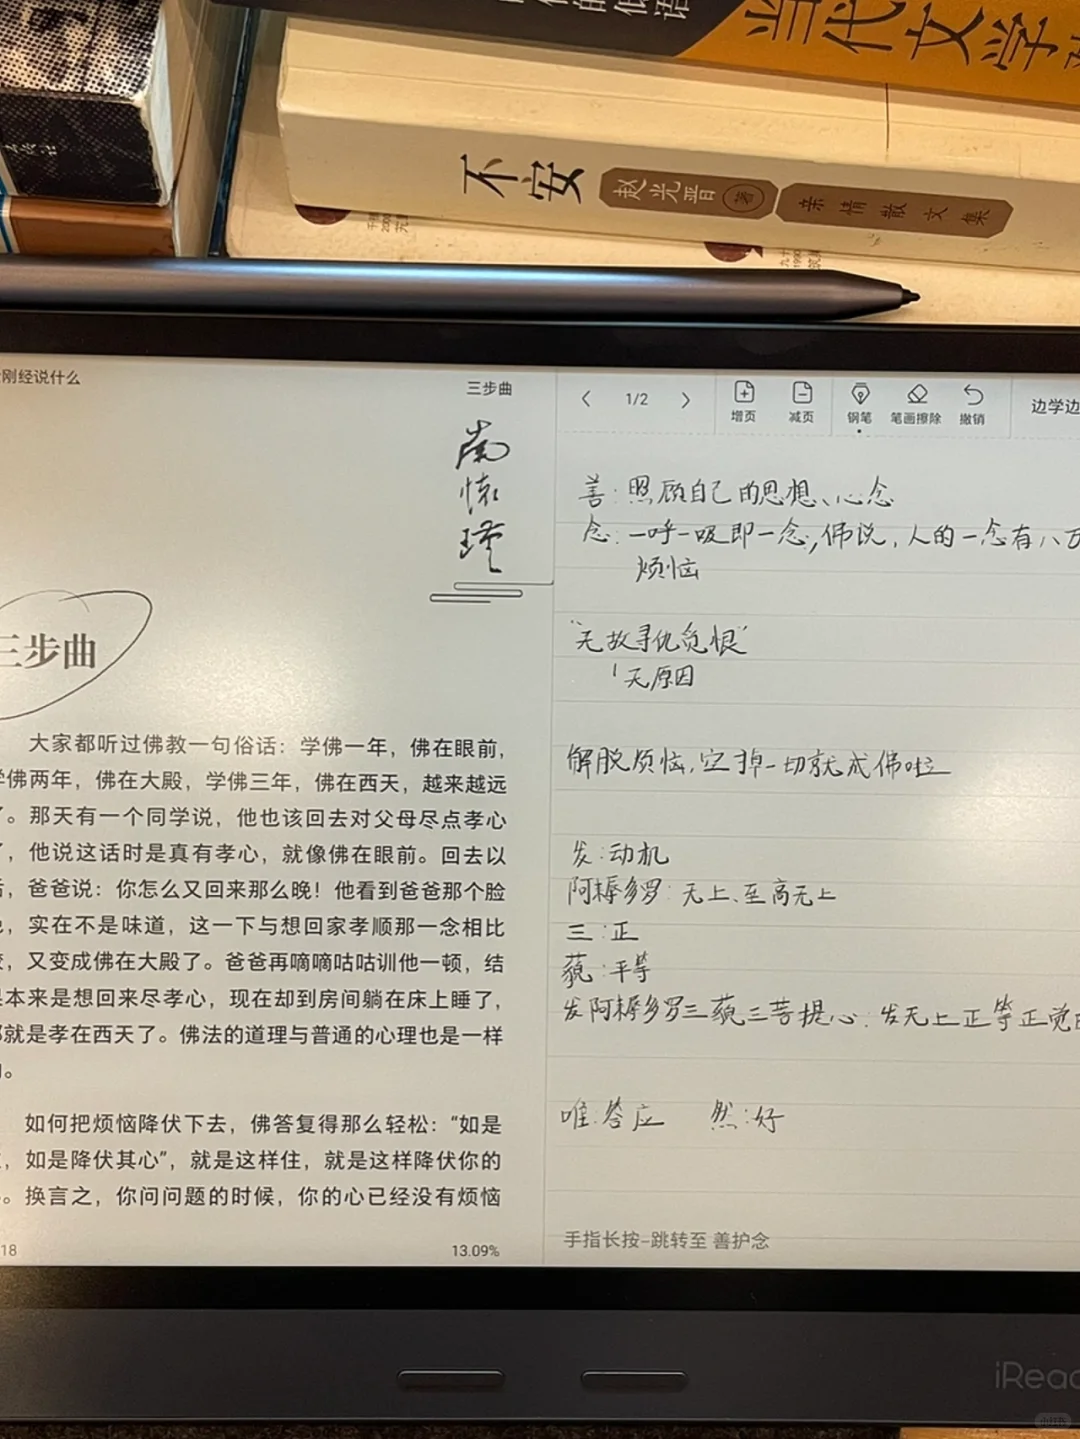 的低语
当代文学
不安 赵光晋 著 亲情散文集
刚经说什么
三步曲
南怀瑾
三步曲
大家都听过佛教一句俗话：学佛一年，佛在眼前，
学佛两年，佛在大殿，学佛三年，佛在西天，越来越远
了。那天有一个同学说，他也该回去对父母尽点孝心
，他说这话时是真有孝心，就像佛在眼前。回去以
后，爸爸说：你怎么又回来那么晚！他看到爸爸那个脸
色，实在不是味道，这一下与想回家孝顺那一念相比
较，又变成佛在大殿了。爸爸再嘀嘀咕咕训他一顿，结
果本来是想回来尽孝心，现在却到房间躺在床上睡了，
那就是孝在西天了。佛法的道理与普通的心理也是一样
的。
如何把烦恼降伏下去，佛答复得那么轻松：“如是
，如是降伏其心”，就是这样住，就是这样降伏你的
。换言之，你问问题的时候，你的心已经没有烦恼
18
13.09%
1/2 增页 减页 钢笔 笔画擦除 撤销 边学边
善：照顾自己的思想、心念
念：一呼一吸即一念，佛说，人的一念有八万
烦恼
“无故寻仇觅恨”
无原因
解脱烦恼，空掉一切就成佛啦
发：动机
阿耨多罗：无上、至高无上
三：正
藐：平等
发阿耨多罗三藐三菩提心：发无上正等正觉
唯：答应 然：好
手指长按-跳转至 善护念
iRea